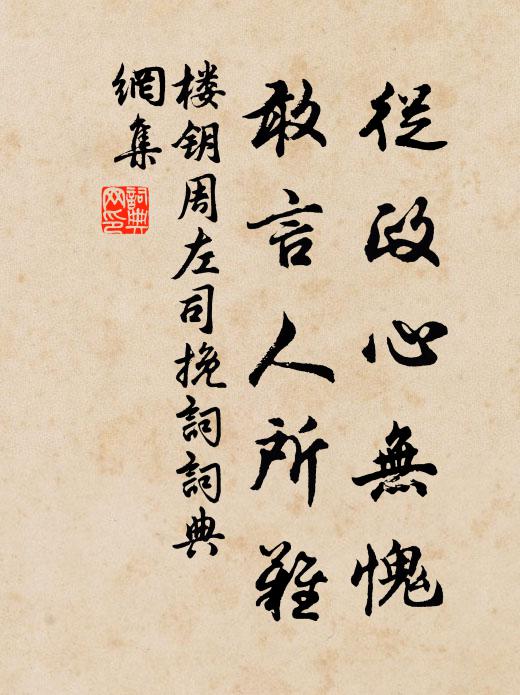 從政心無愧
敢言人所難
楼钥周左司挽詞詞典
網集
詞典
网印